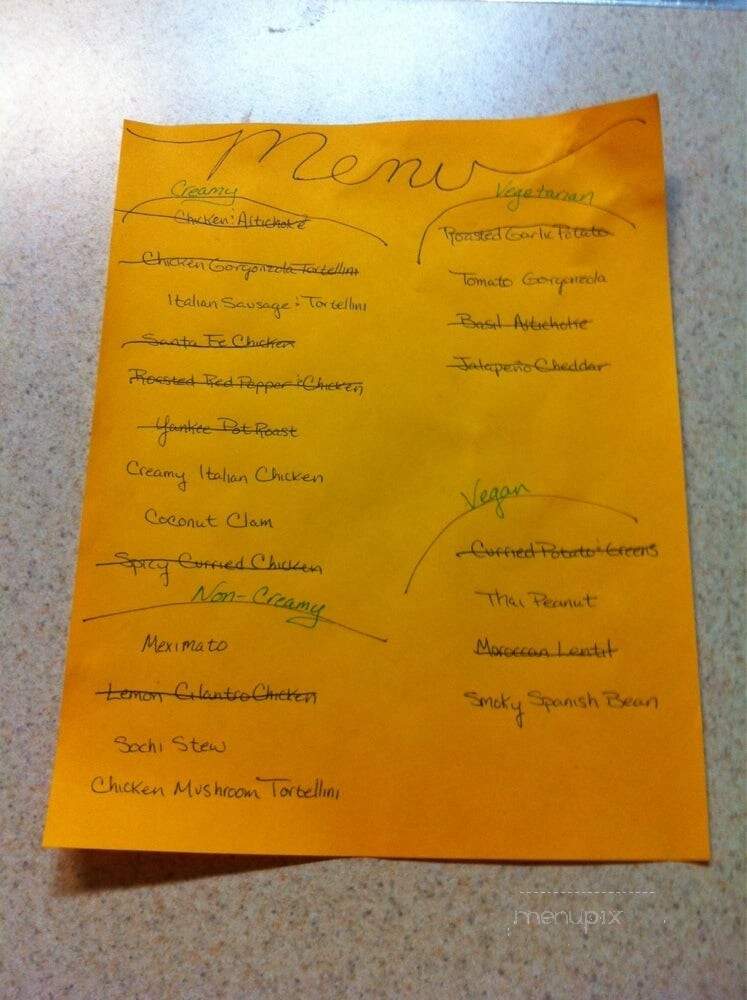 Menu
Creamy
Chicken : Artichoke
Chicken Gorgonzola Tortellini
Italian Sausage : Tortellini
Santa Fe Chicken
Roasted Red Pepper : Chicken
Yankee Pot Roast
Creamy Italian Chicken
Coconut Clam
Spicy Curried Chicken
Non-Creamy
Meximato
Lemon Cilantro Chicken
Sochi Stew
Chicken Mushroom Tortellini
Vegetarian
Roasted Garlic Potato
Tomato Gorgonzola
Basil Artichoke
Jalapeño Cheddar
Vegan
Curried Potato : Greens
Thai Peanut
Moroccan Lentil
Smoky Spanish Bean
menupix